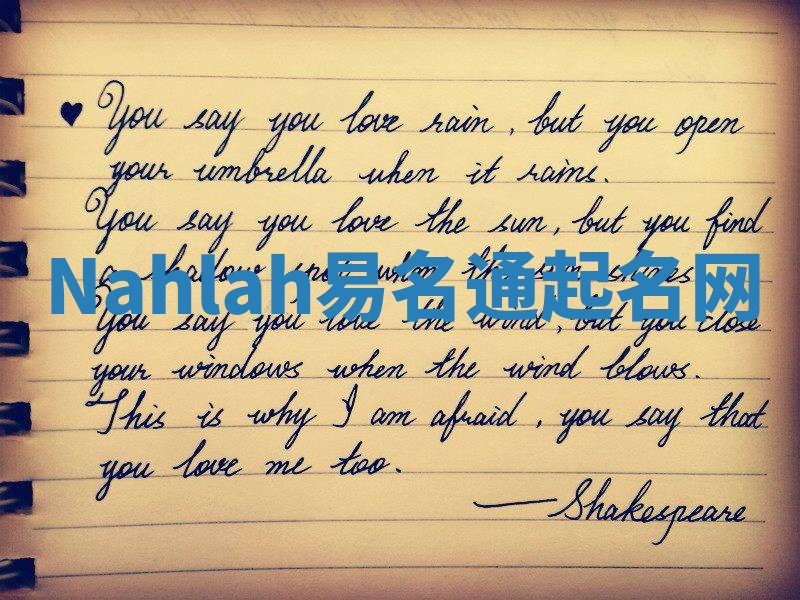 ♥ You say you love rain, but you open
your umbrella when it rains.
You say you love the sun, but you find
a shadow spot when the sun shines
Nahlah易名通起名网
You say you love the wind, but you close
your windows when the wind blows.
This is why I am afraid, you say that
you love me too.
— Shakespeare